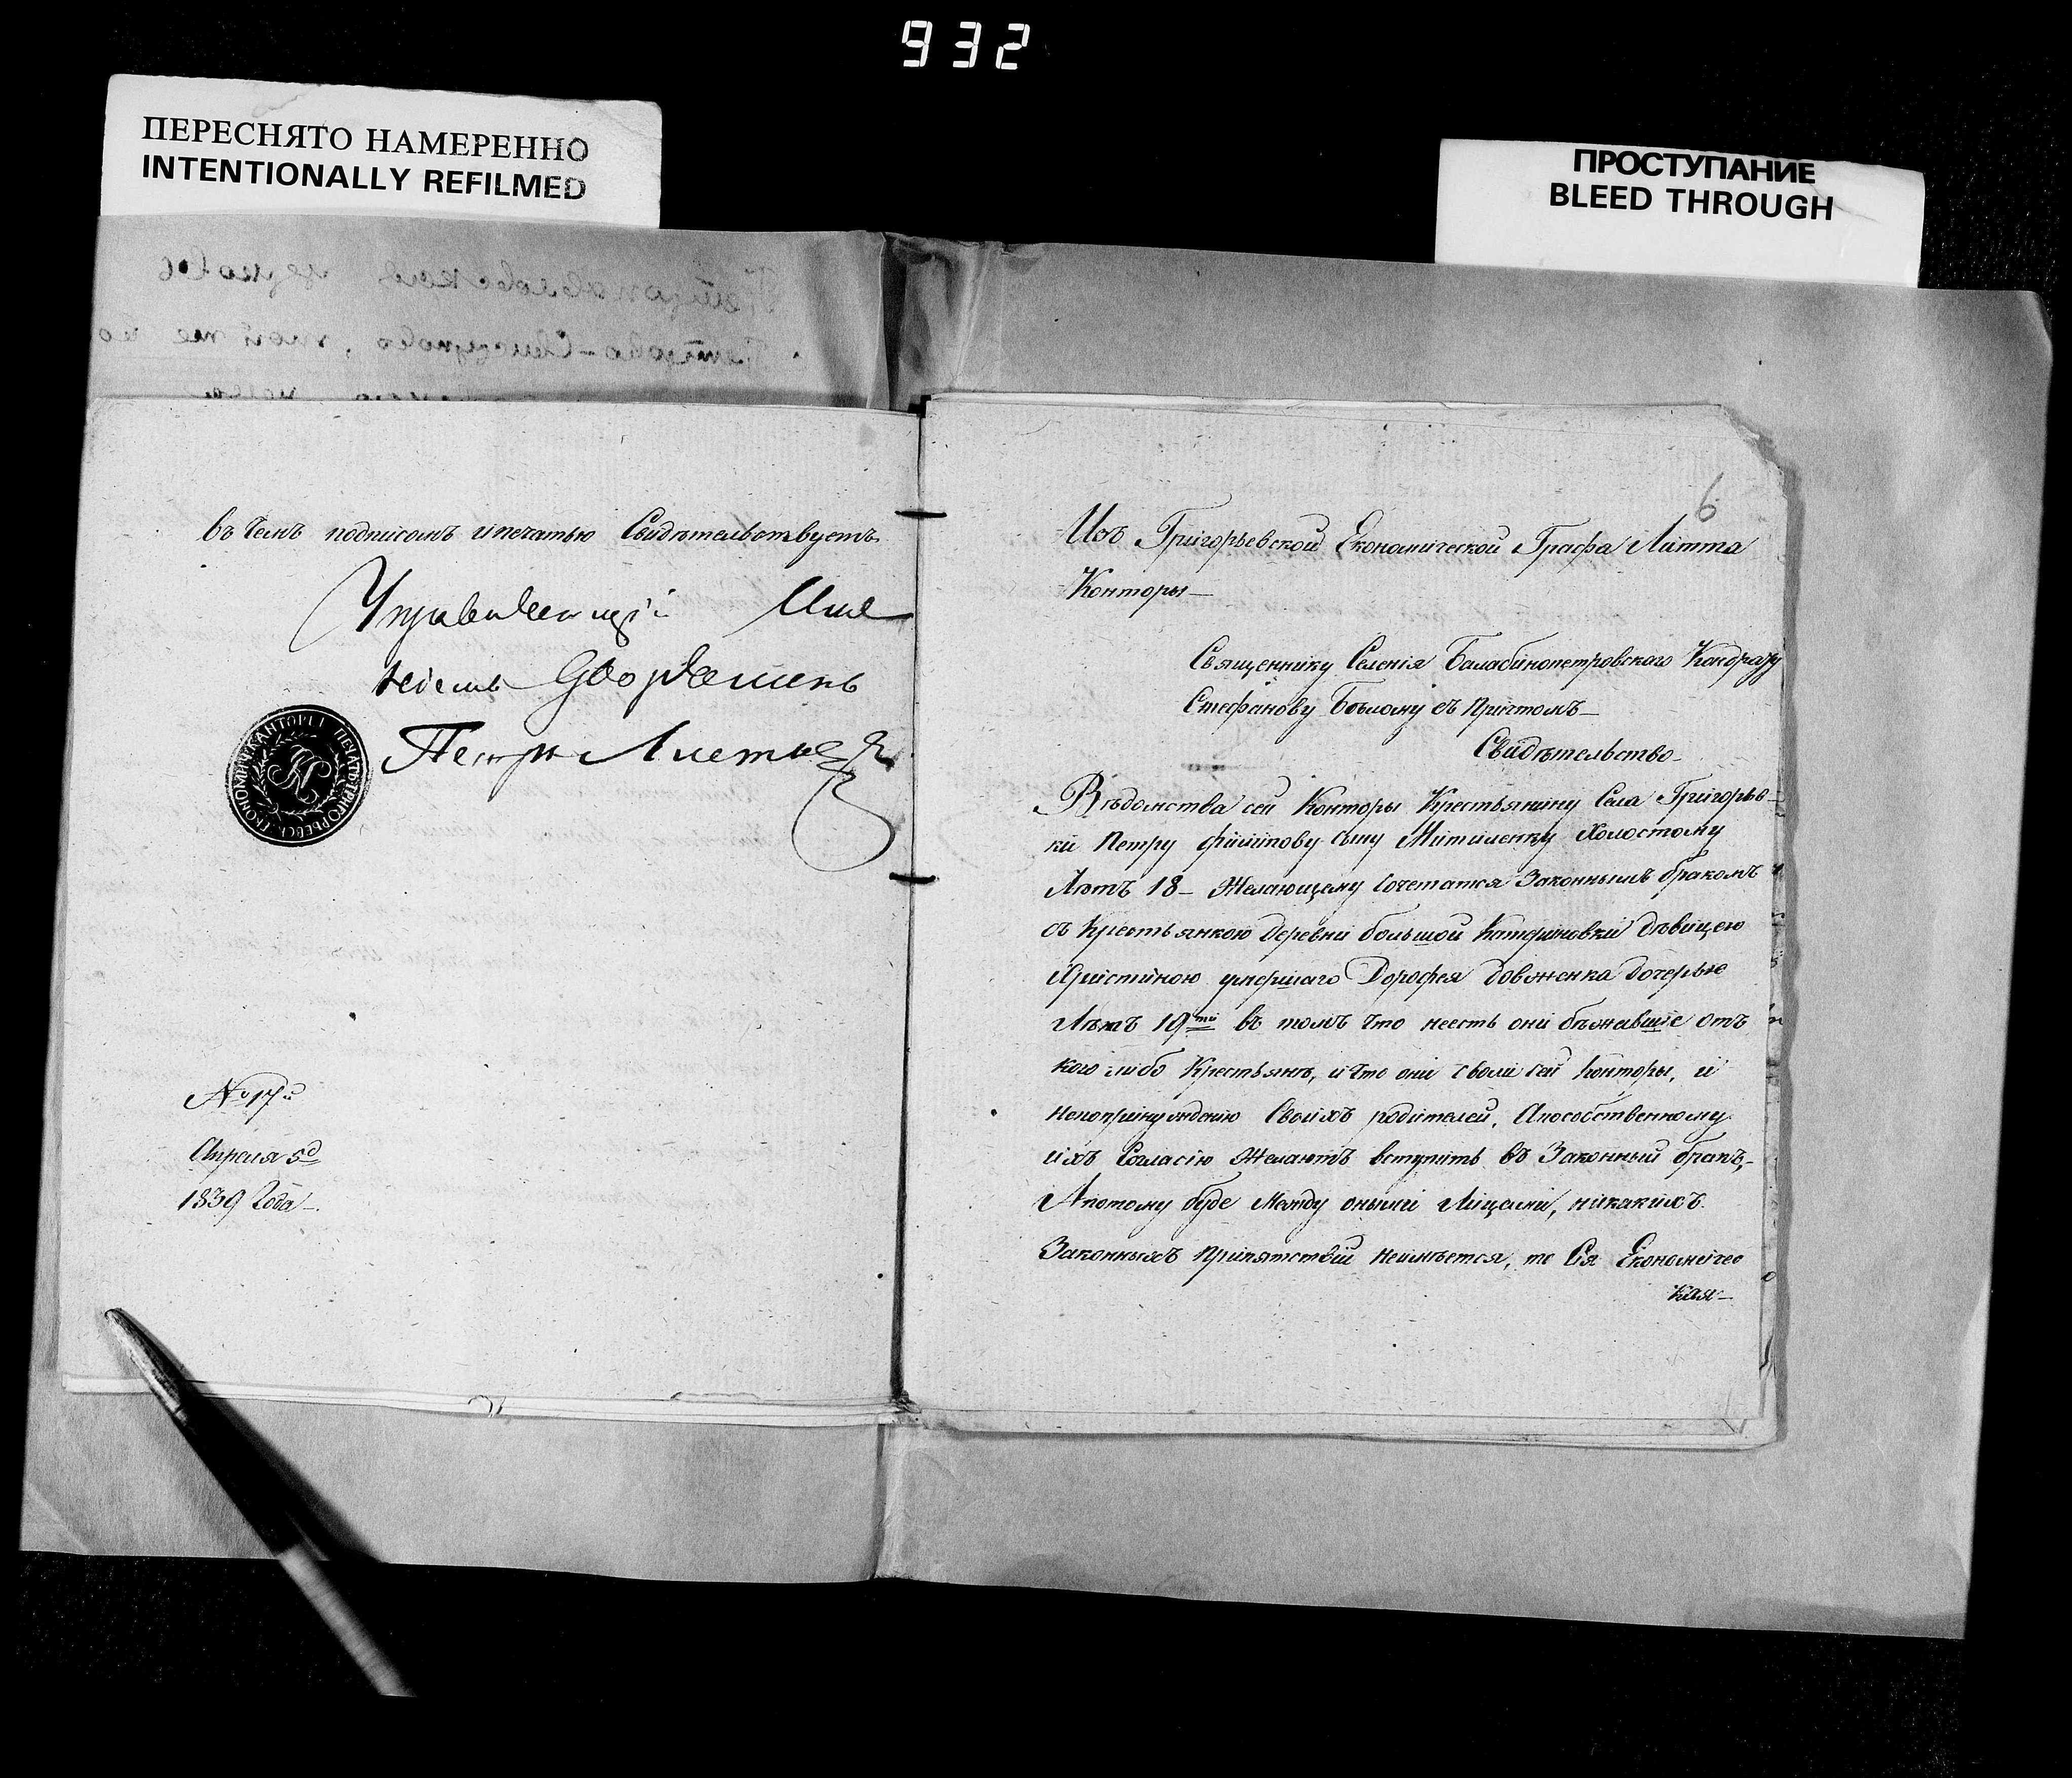 932
ПЕРЕСНЯТО НАМЕРЕННО
INTENTIONALLY REFILMED
ПРОСТУПАНИЕ
BLEED THROUGH
въ чемъ подписомъ ипечатью Свидѣтельствуетъ
Управляющій Име
ніемъ Дворянинъ
Петръ
№ 17й
Апреля 5д
1839 Года
6
Изъ Григорьевской Економической Графа Литта
Конторы
Священнику Селенія Балабинопетровского
Стефанову Бѣлому съ Причтомъ
Свидѣтельство
Вѣдомства сей Конторы Крестьянину Села Григорьв-
ки Петру Филипову сыну Холостому
Лѣтъ 18 Желающему Сочетатся Законнымъ бракомъ
съ Крестьянкою деревни большой Катериновки дѣвицею
Христиною умершаго Дорофея довженка дочерью
Лѣтъ 19ти въ томъ что неесть они бѣжавшіе отъ
кого либо Крестьянъ, и что они сволй сей Конторы, и
непопринужденію Своихъ родителей, Апособственному
ихъ Согласію Желаютъ вступить въ Законный бракъ,
Апотому буде Между оными Лицами, никакихъ
Законныхъ Припятствій неимѣется, то Сія Економичес
кая